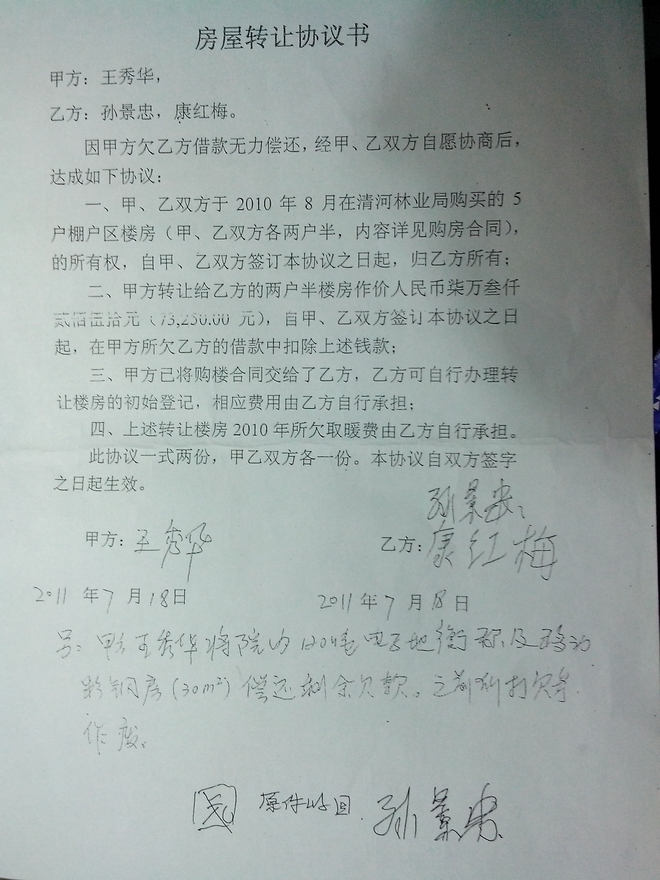 房屋转让协议书
甲方：王秀华，
乙方：孙景忠，康红梅。
因甲方欠乙方借款无力偿还，经甲、乙双方自愿协商后，
达成如下协议：
一、甲、乙双方于 2010 年 8 月在清河林业局购买的 5
户棚户区楼房（甲、乙双方各两户半，内容详见购房合同），
的所有权，自甲、乙双方签订本协议之日起，归乙方所有；
二、甲方转让给乙方的两户半楼房作价人民币柒万叁仟
贰佰伍拾元（73,250.00 元），自甲、乙双方签订本协议之日
起，在甲方所欠乙方的借款中扣除上述钱款；
三、甲方已将购楼合同交给了乙方，乙方可自行办理转
让楼房的初始登记，相应费用由乙方自行承担；
四、上述转让楼房 2010 年所欠取暖费由乙方自行承担。
此协议一式两份，甲乙双方各一份。本协议自双方签字
之日起生效。
孙景忠、
甲方：王秀华 乙方：康红梅
2011 年 7 月 18 日 2011 年 7 月 18 日
另：甲方王秀华将院内120吨电子地衡称及移动
彩钢房(30m²)偿还剩余欠款。之前所打欠条
作废。
原件收回 孙景忠